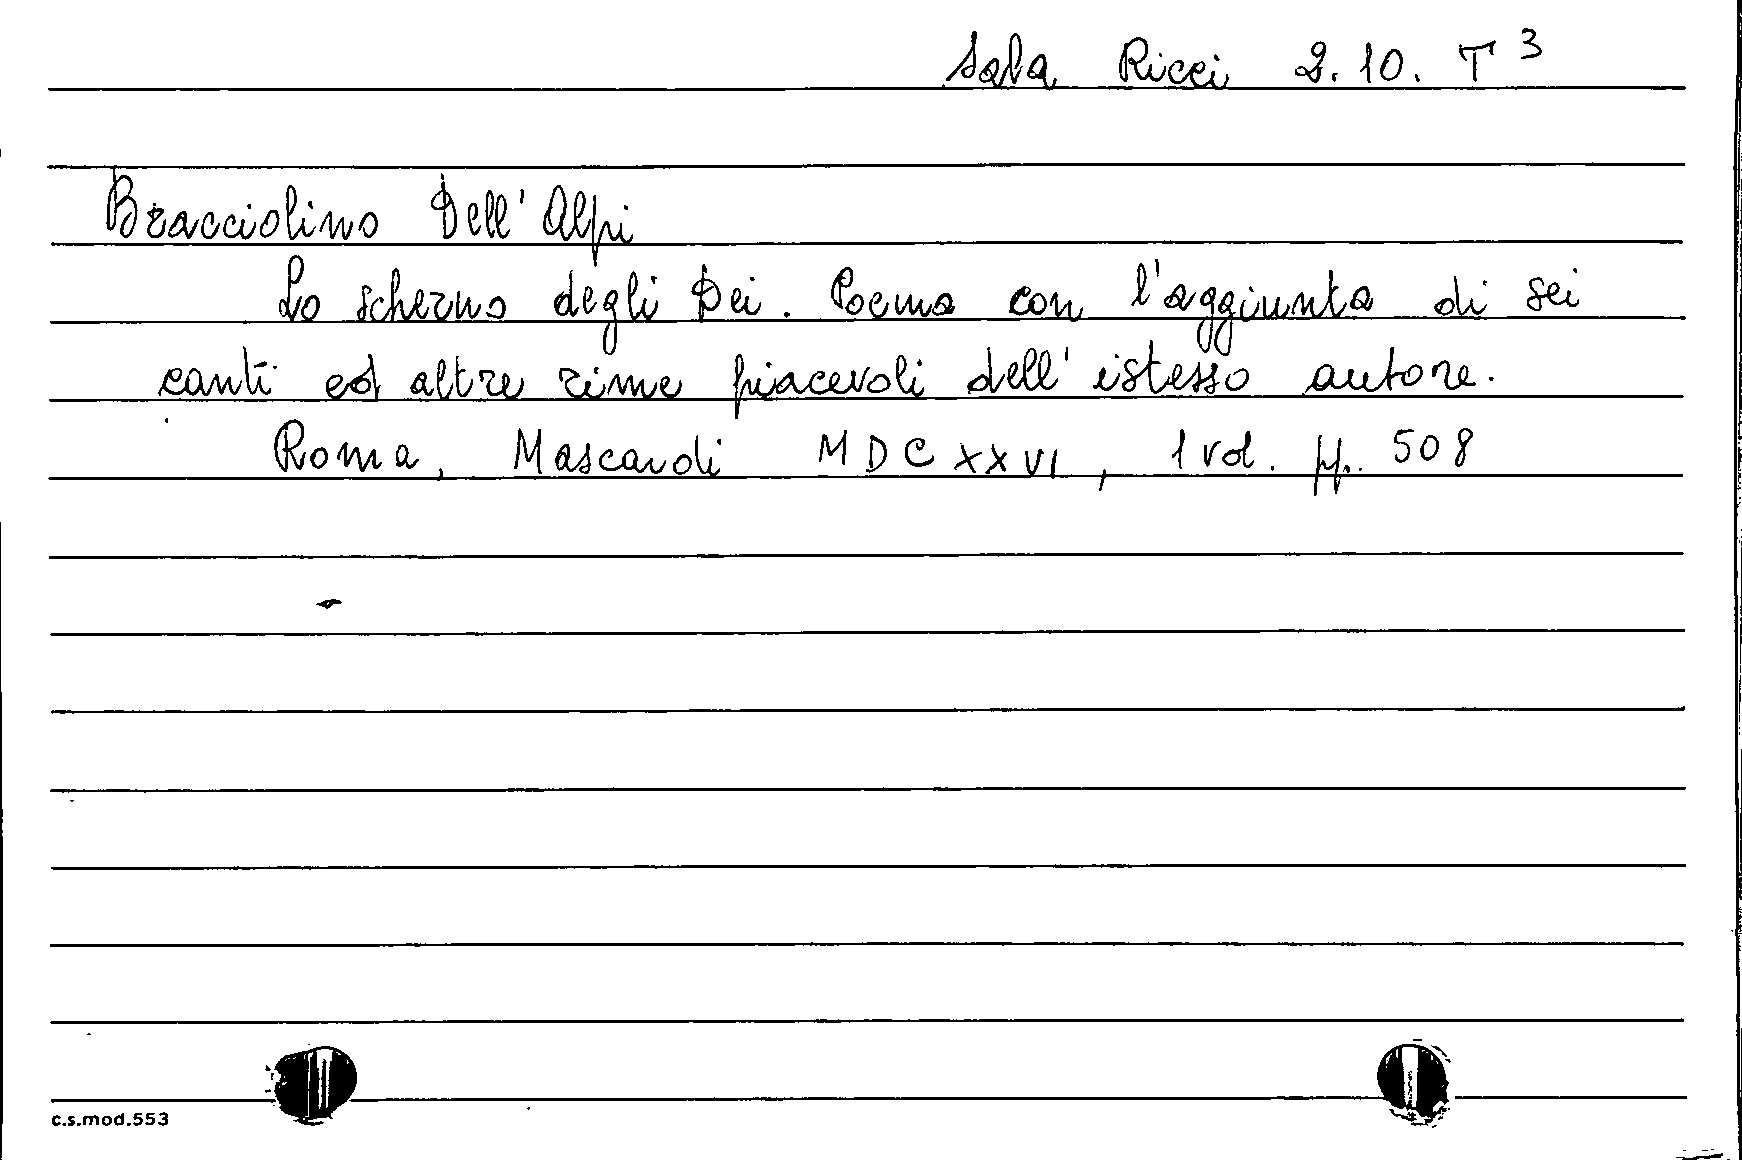 Sala Ricci 2.10. T 3
Bracciolino Dell'Alpi
Lo scherno degli Dei. Poema con l'aggiunta di sei
canti ed altre rime piacevoli dell'istesso autore.
Roma, Mascardi MDCXXVI, 1 vol. pp. 508
c.s.mod.553